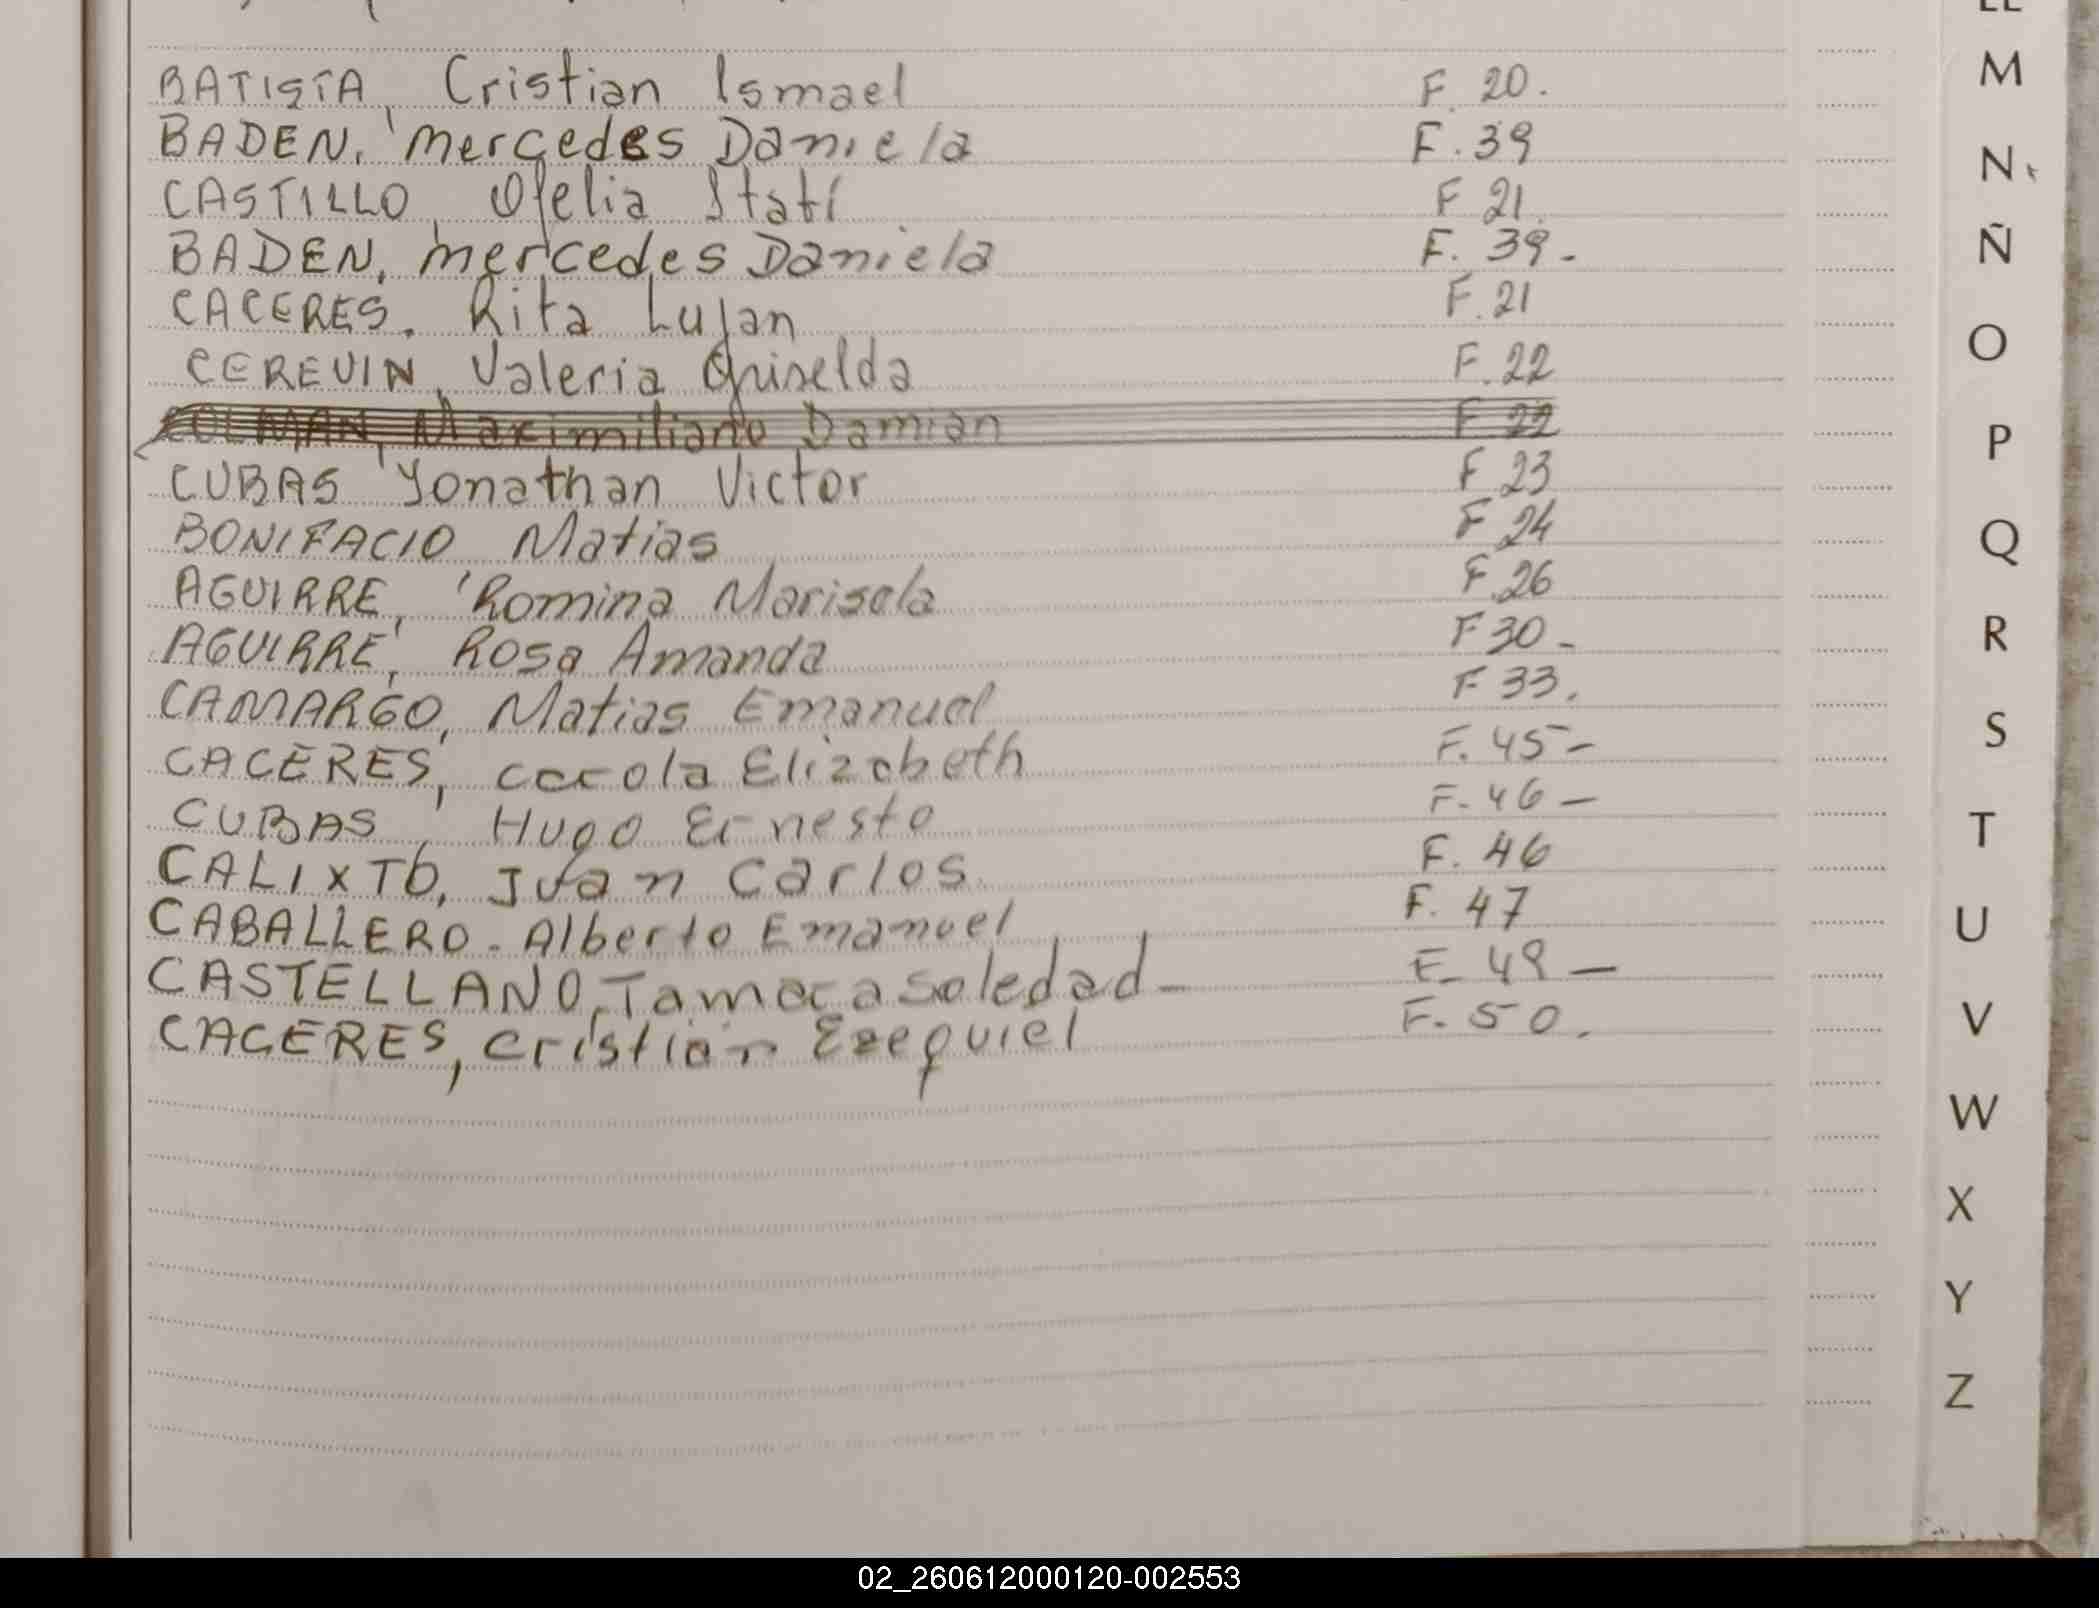 BATISTA, Cristian Ismael F. 20.
BADEN, Mercedes Daniela F. 39
CASTILLO, Ofelia Itatí F 21.
BADEN, Mercedes Daniela F. 39-
CACERES, Rita Lujan F. 21
CEREVIN, Valeria Griselda F. 22
COLMAN, Maximiliano Damian F 22
CUBAS Yonathan Victor F 23
BONIFACIO Matias F 24
AGUIRRE, Romina Marisela F. 26
AGUIRRE, Rosa Amanda F 30-
CAMARGO, Matias Emanuel F 33.
CACERES, Carola Elizabeth F. 45-
CUBAS, Hugo Ernesto F. 46-
CALIXTO, Juan Carlos F. 46
CABALLERO - Alberto Emanuel F. 47
CASTELLANO, Tamara Soledad - F. 49 -
CACERES, Cristian Ezequiel F. 50.
M
N
Ñ
O
P
Q
R
S
T
U
V
W
X
Y
Z
02_260612000120-002553